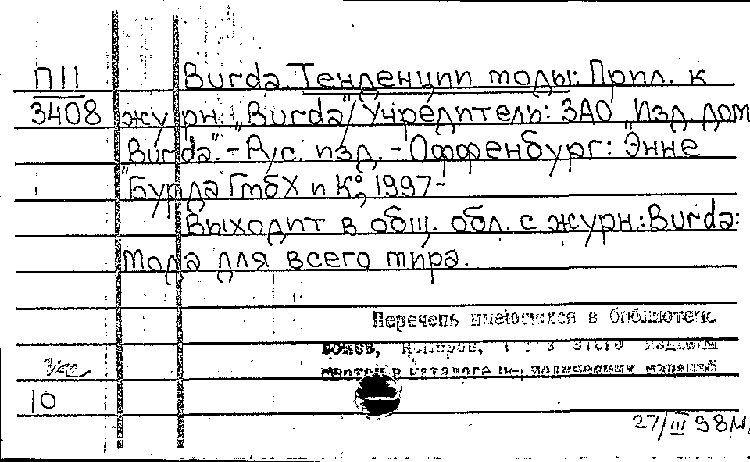 П11
3408
Burda Тенденции моды: Прил. к
журн. "Burda"/Учредитель: ЗАО "Изд. дом
Burda". - Рус. изд. - Оффенбург: Энне
Бурда ГмбХ и К°, 1997-
Выходит в общ. обл. с журн.: Burda:
Мода для всего мира.
Перечень имеющихся в библиотеке
томов, номеров, этого издания
смотри в каталоге периодических изданий
10
27/III 98